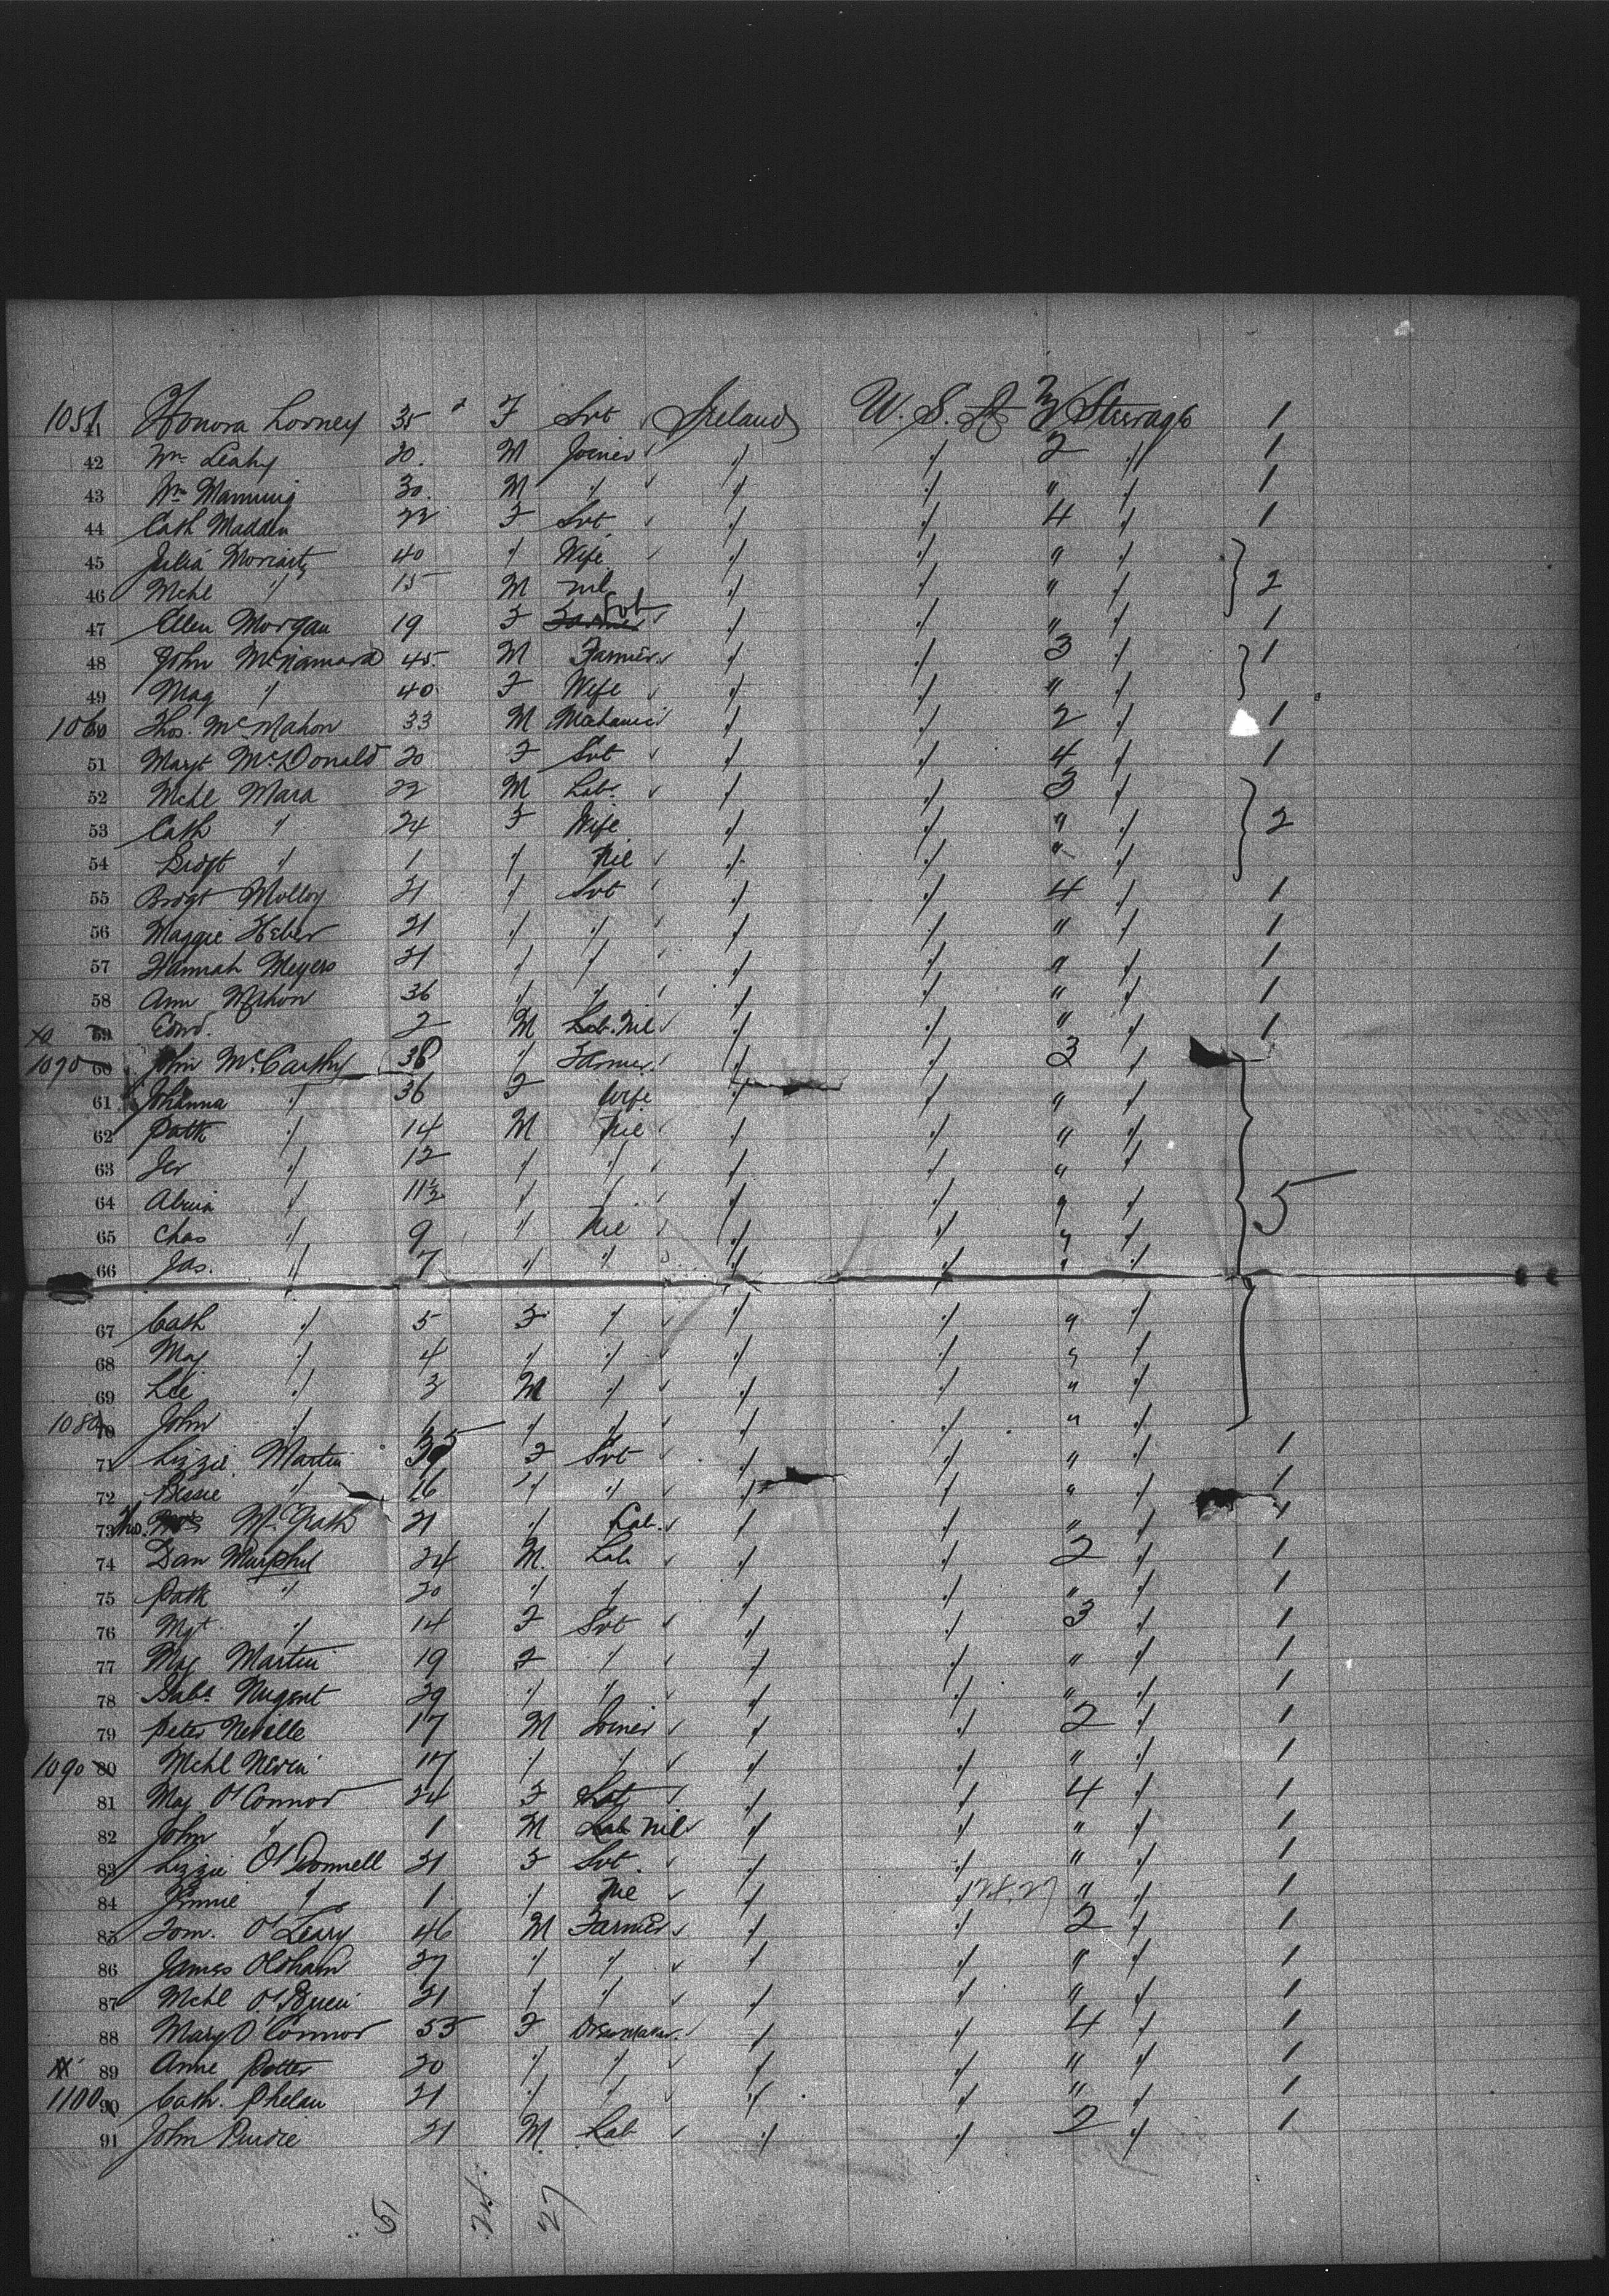 1051 41 Honora Looney 35 " F Svt ✓ Ireland U. S. A 3 Steerage 1
42 Wm Leahy 20 M Joiner ✓ " " 2 " 1
43 Wm Manning 30 M " ✓ " " " " 1
44 Cath Madden 22 F Svt ✓ " " 4 " 1
45 Julia Moriarty 40 " Wife ✓ " " " "
46 Mchl " 15 M nil " " " " 2
47 Ellen Morgan 19 F Farmer Svt ✓ " " " " 1
48 John McNamara 45 M Farmer ✓ " " 3 " 1
49 Mag " 40 F Wife ✓ " " " "
1060 Thos. McMahon 33 M Mechanic " " 2 " 1
51 Margt McDonald 20 F Svt ✓ " " 4 " 1
52 Mchl Mara 22 M Lab. ✓ " " 3 "
53 Cath " 24 F Wife " " " " 2
54 Bridgt " 1 " Nil ✓ " " " "
55 Bridgt Molloy 21 " Svt ✓ " " 4 " 1
56 Maggie Heber 21 " " ✓ " " " " 1
57 Hannah Meyers 21 " " ✓ " " " " 1
58 Ann Mahon 36 " " ✓ " " " " 1
59 Edwd. 2 M Lab. Nil ✓ " " " " 1
1070 60 John McCarthy 38 " Farmer " " 3 "
61 Johanna " 36 F Wife " " " "
62 Patk " 14 M Nil ✓ " " " "
63 Jer " 12 " " ✓ " " " "
64 " 11½ " " ✓ " " " "
65 Chas " 9 " Nil ✓ " " " " 5
66 Jas. " 7 " " " " " "
67 Cath " 5 F " ✓ " " " "
68 May " 4 " " ✓ " " " "
69 " 3 M " ✓ " " " "
1080 70 John " " " ✓ " " " "
71 Lizzie Martin 35 F Svt ✓ " " " " 1
72 Bessie " 16 " " ✓ " " " " 1
73 Tho. McGrath 21 " Lab. ✓ " " " " 1
74 Dan Murphy 24 M. Lab ✓ " " 2 " 1
75 Patk " 20 " " " " " " 1
76 Mgt " 14 F Svt ✓ " " 3 " 1
77 May Martin 19 F " ✓ " " " " 1
78 Nugent 29 " " ✓ " " " " 1
79 Peter Neville 17 M Joiner ✓ " " 2 " 1
1090 80 Mchl Nevin 17 " " ✓ " " " " 1
81 May O'Connor 24 F Svt ✓ " " 4 " 1
82 John " 1 M Lab Nil ✓ " " " " 1
83 Lizzie O'Donnell 21 F Svt. ✓ " " " " 1
84 Jinnie " 1 " Nil ✓ " " " " 1
85 Tom. O'Leary 46 M Farmer ✓ " " 2 " 1
86 James Oldham 27 " " ✓ " " " " 1
87 Mchl 21 " " ✓ " " " " 1
88 Mary O'Connor 55 F Dressmaker ✓ " " 4 " 1
89 Anne Potter 20 " " ✓ " " " " 1
1100 90 Cath. Phelan 21 " " ✓ " " " " 1
91 John Purdie 21 M. Lab ✓ " " 2 " 1
51 24 27